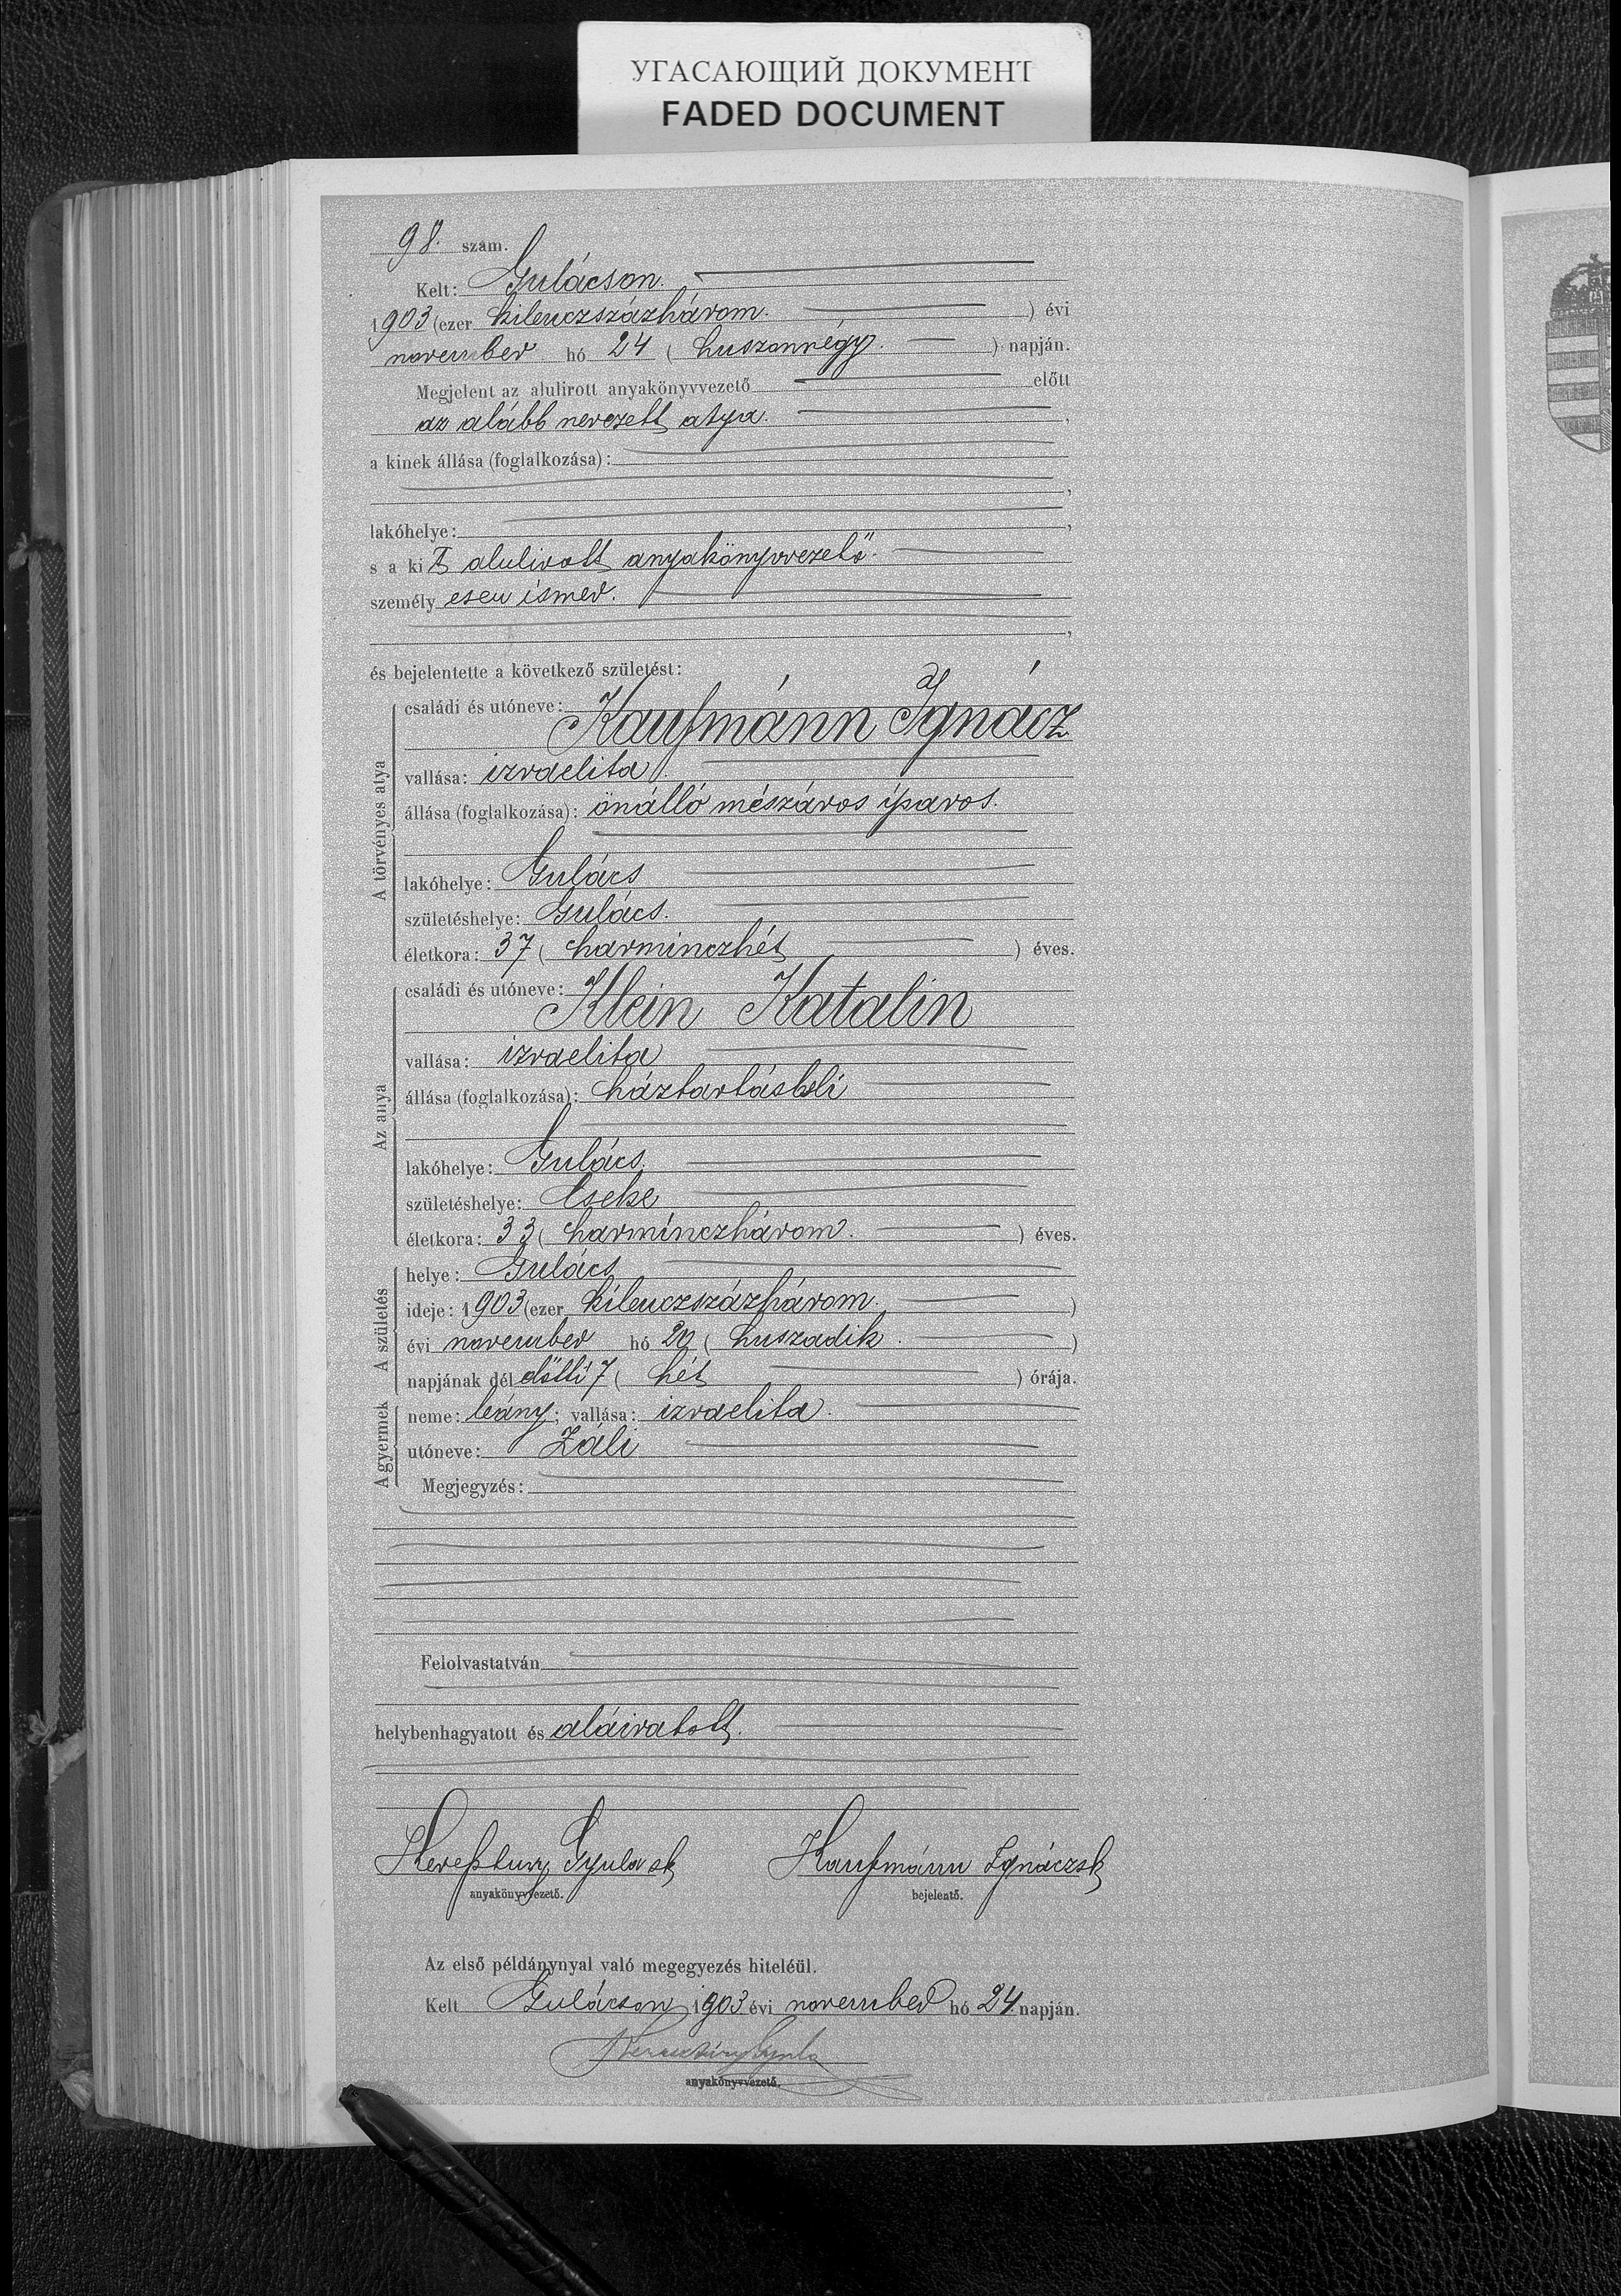 УГАСАЮЩИЙ ДОКУМЕНТ
FADED DOCUMENT
98. szám.
Kelt: Gulácson.
1903 (ezer kilenczszázhárom. ) évi
november hó 24 ( huszonnégy. ) napján.
Megjelent az alulirott anyakönyvvezető előtt
az alább nevezett atya. ,
a kinek állása (foglalkozása):
,
lakóhelye: ,
s a kit alulirott anyakönyvvezető
személyesen ismer.
,
és bejelentette a következő születést:
A törvényes atya
családi és utóneve:
Kaufmánn Ignácz
vallása: izraelita.
állása (foglalkozása): önálló mészáros iparos.
lakóhelye: Gulács
születéshelye: Gulács.
életkora: 37 ( harminczhét ) éves.
Az anya
családi és utóneve:
Klein Katalin
vallása: izraelita
állása (foglalkozása): háztartásbeli
lakóhelye: Gulács.
születéshelye: Cseke
életkora: 33 ( harminczhárom. ) éves.
A születés
helye: Gulács
ideje: 1903 (ezer kilenczszázhárom. )
évi november hó 20 ( huszadik. )
napjának délelőtti 7 ( hét ) órája.
A gyermek
neme: leány; vallása: izraelita.
utóneve: Záli
Megjegyzés:
Felolvastatván
helybenhagyatott és aláiratott.
Kereßtury Gyula sk Kaufmánn Ignácz sk
anyakönyvvezető. bejelentő.
Az első példánynyal való megegyezés hiteléül.
Kelt Gulácson 1903 évi november hó 24. napján.
Keresztúry Gyula
anyakönyvvezető.